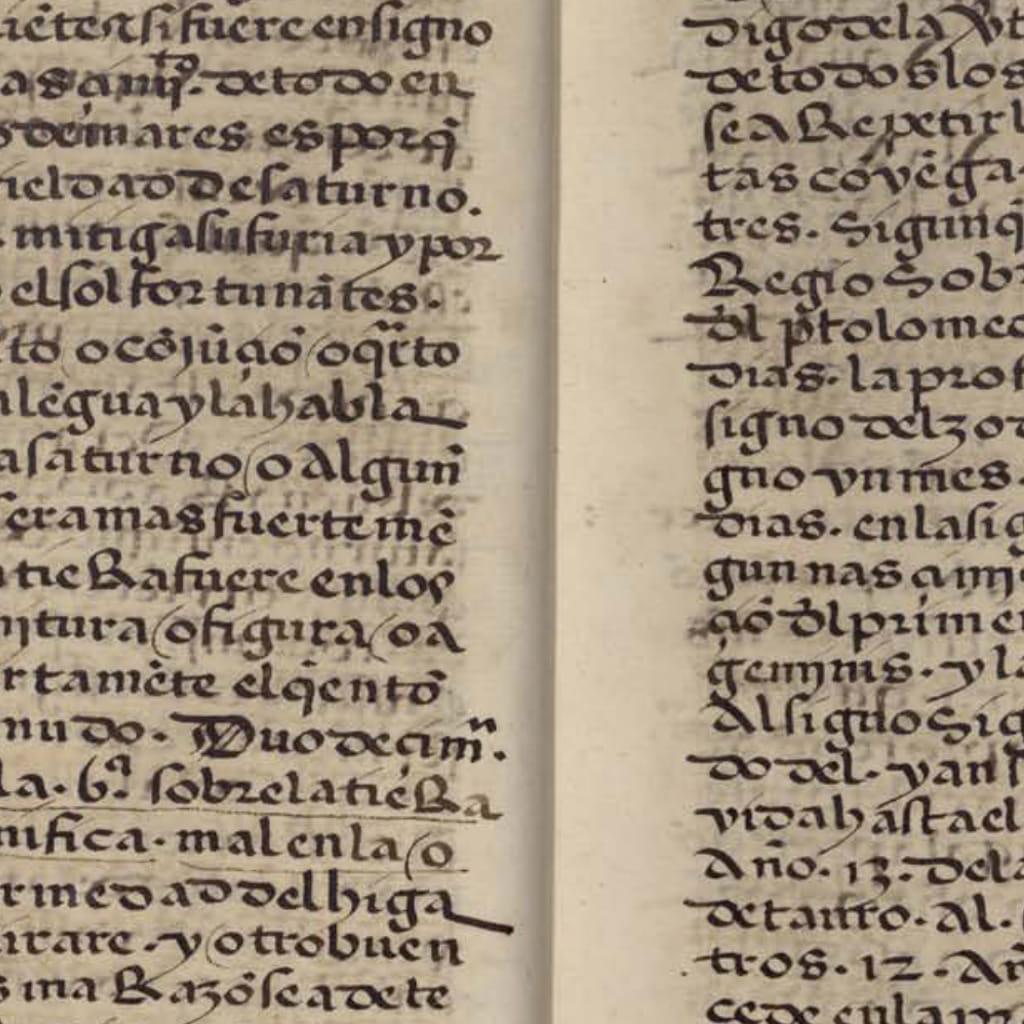 iẽte τ si fuere en signo
as q̃ mq̃to. de todo en
s de mares es porq̃
ieldad de saturno.
mitiga su furia y por
el sol fortunãtes.
to o cõjũçiõ o qrto
lẽgua y la habla
a saturno o Algun
sera mas fuertemẽ
tieRa fuere en los
nitura o figura o a
rtamẽte el q̃ento
nudo. Duodecim
la. 6ª sobre la tiẽRa
nifica. mal en la o
rmedad del higa
irare. y otro buen
s ma Razõ sea de te
digo de la
de todos los
sea Repetir
tas cõvẽga
tres. Sigun q̃
Regio Sob
dl ptolomeo
dias. la prof
signo del zo
gno vn mes.
dias. en la sig
gunnas
çiõ dl primer
geminis. y la
Al signo Sig
do del. y an
vida hasta el
Año. 13. Dela
de tauro. Al.
tros. 12. Añ
cede en la